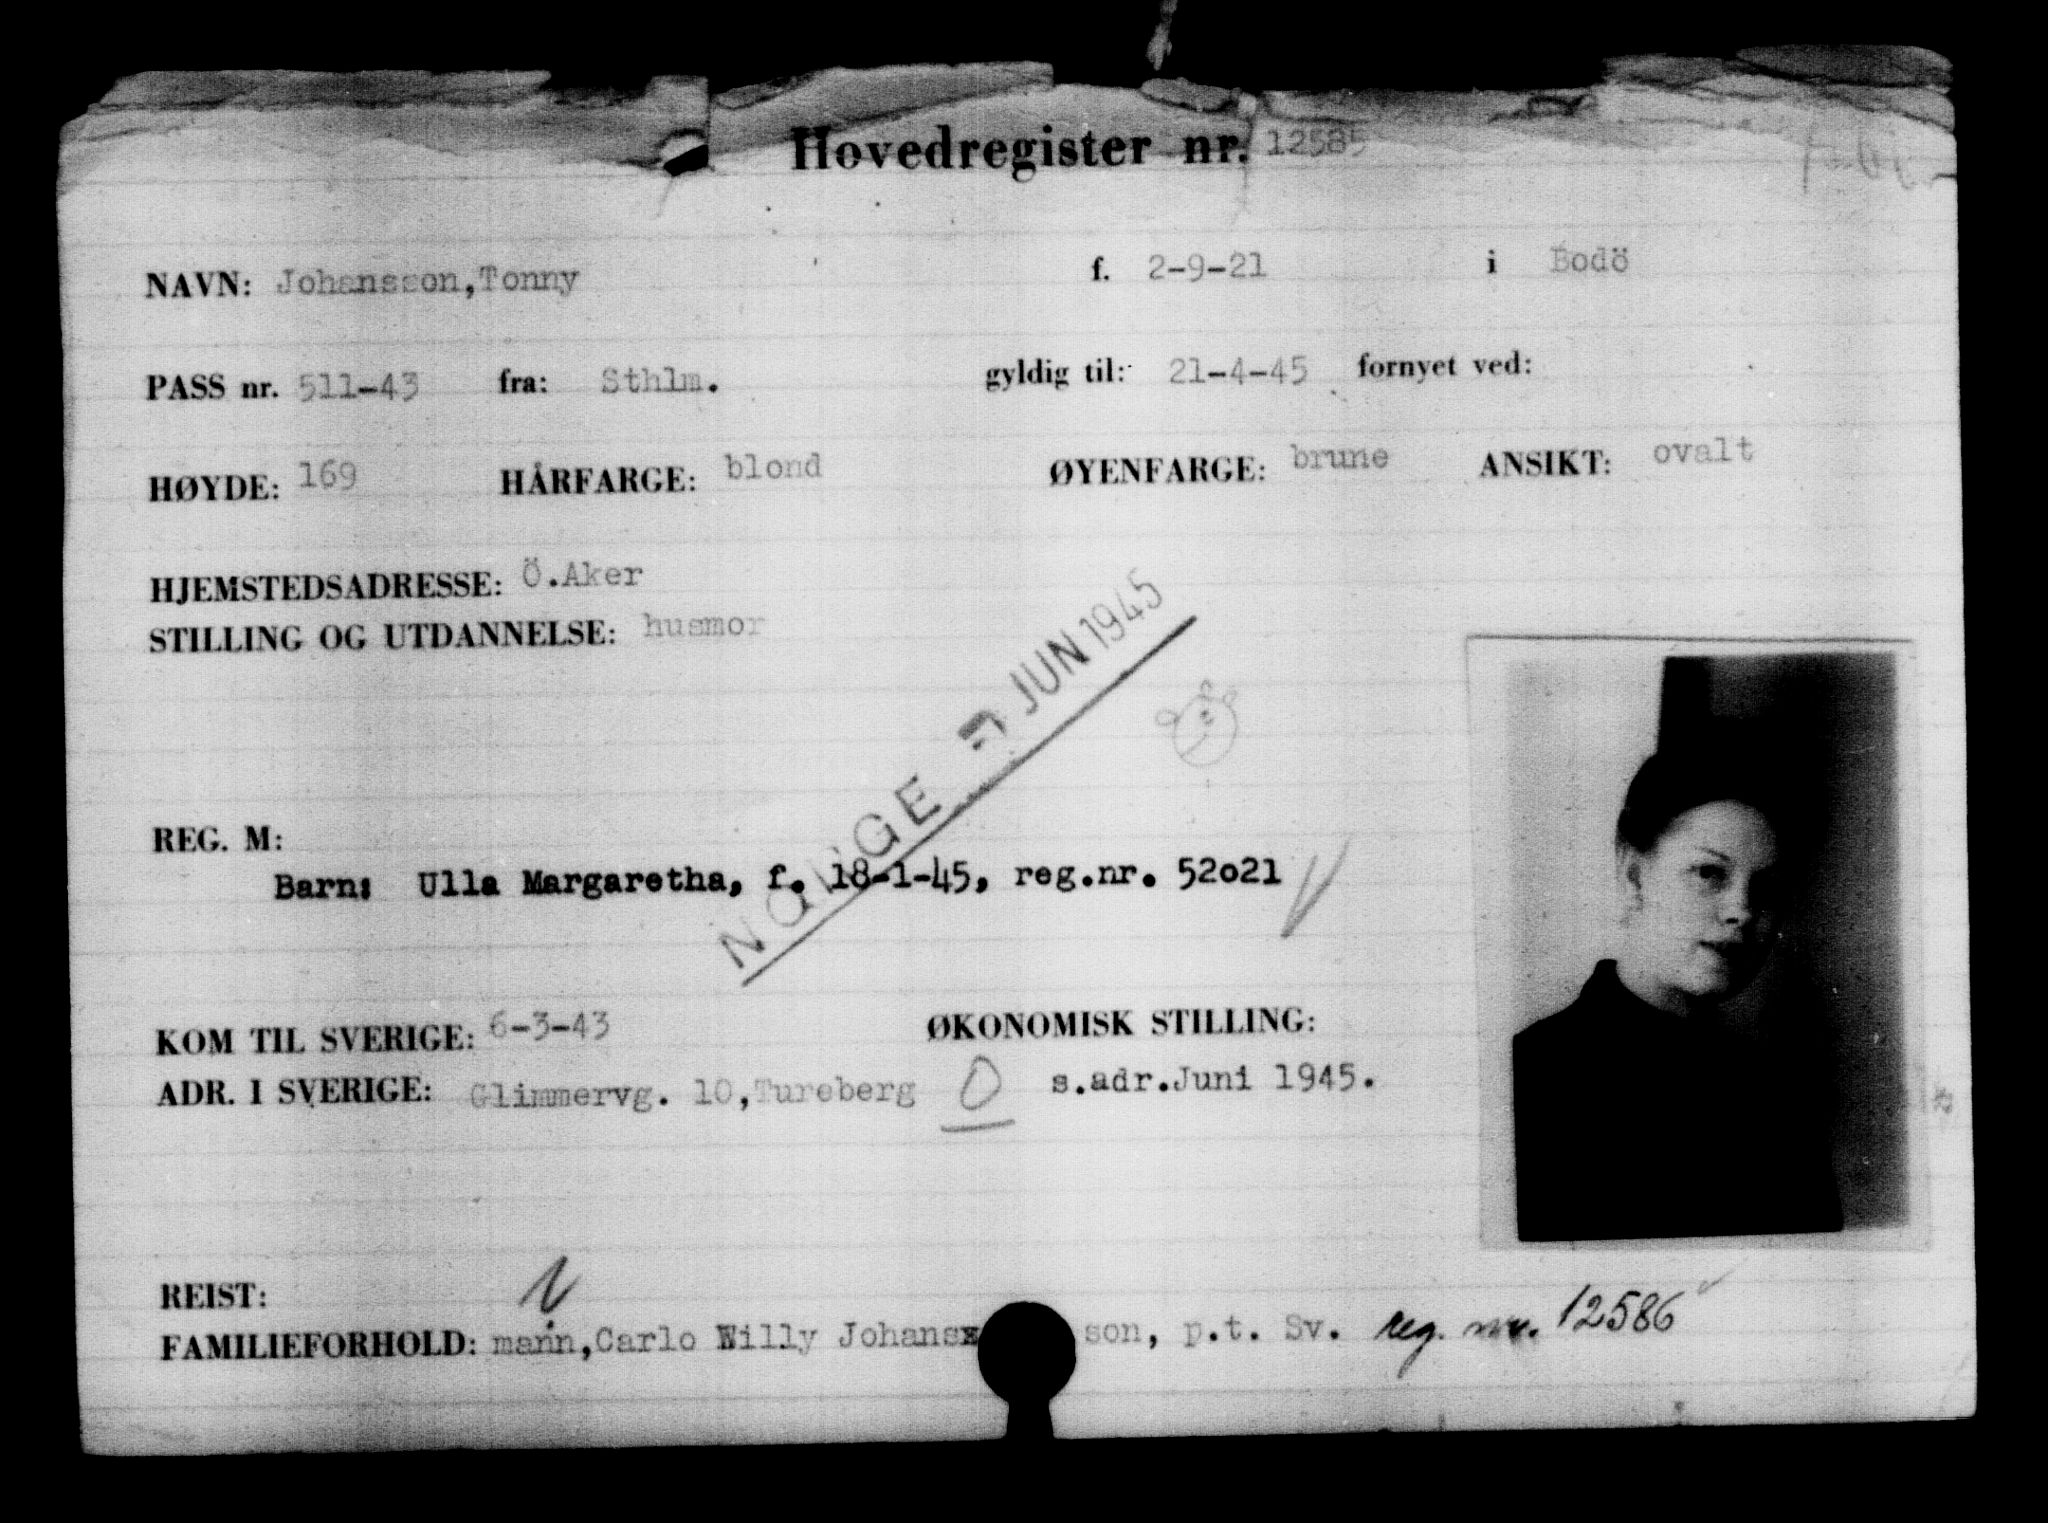 Hovedregister nr. 12585
NAVN: Johansson,Tonny f. 2-9-21 i Bodö
PASS nr. 511-43 fra: Sthlm. gyldig til: 21-4-45 fornyet ved:
HØYDE: 169 HÅRFARGE: blond ØYENFARGE: brune ANSIKT: ovalt
HJEMSTEDSADRESSE: Ö.Aker
STILLING OG UTDANNELSE: husmor
NORGE 7 JUN 1945
REG. M:
Barn: Ulla Margaretha, f. 18-1-45, reg.nr. 52o21
KOM TIL SVERIGE: 6-3-43 ØKONOMISK STILLING:
ADR. I SVERIGE: Glimmervg. 10,Tureberg O s.adr.Juni 1945.
REIST:
FAMILIEFORHOLD: mann,Carlo Willy Johansx son, p.t. Sv. reg. nr. 12586